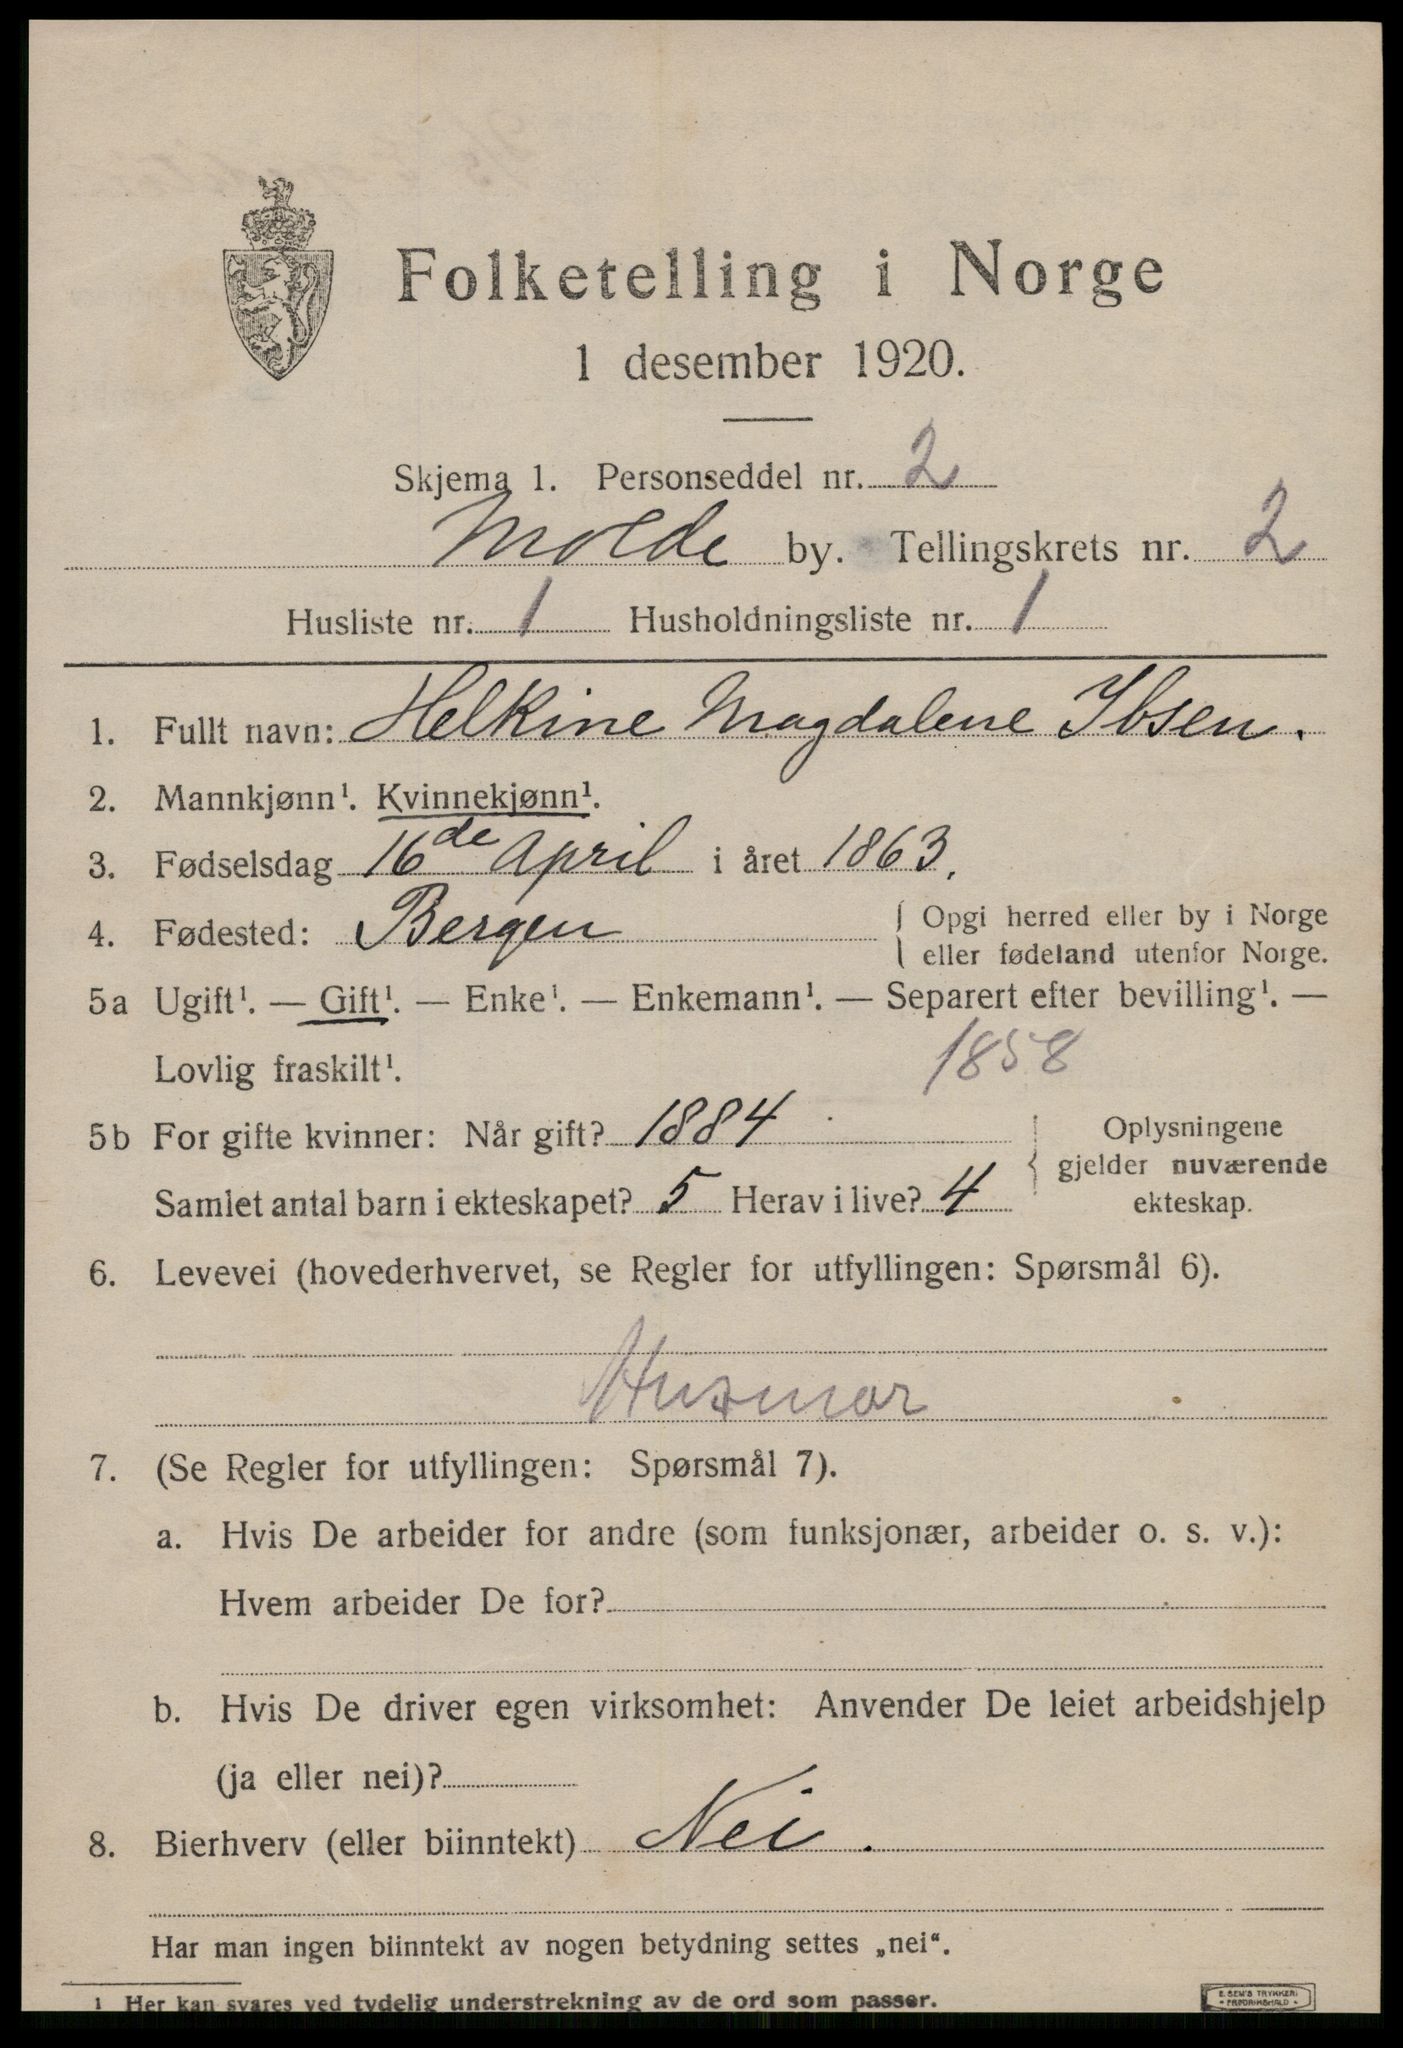 Folketelling i Norge
1 desember 1920.
Skjema 1. Personseddel nr. 2
Molde by. Tellingskrets nr. 2
Husliste nr. 1 Husholdningsliste nr. 1
1. Fullt navn: Helkine Magdalene Ibsen.
2. Mannkjønn¹. Kvinnekjønn¹.
3. Fødselsdag 16de April i året 1863,
4. Fødested: Bergen { Opgi herred eller by i Norge
eller fødeland utenfor Norge.
5a Ugift¹. — Gift¹. — Enke¹. — Enkemann¹. — Separert efter bevilling¹. —
Lovlig fraskilt¹. 1858
5b For gifte kvinner: Når gift? 1884 } Oplysningene
gjelder nuværende
Samlet antal barn i ekteskapet? 5 Herav i live? 4 ekteskap.
6. Levevei (hovederhvervet, se Regler for utfyllingen: Spørsmål 6).
Husmor
7. (Se Regler for utfyllingen: Spørsmål 7).
a. Hvis De arbeider for andre (som funksjonær, arbeider o. s. v.):
Hvem arbeider De for?
b. Hvis De driver egen virksomhet: Anvender De leiet arbeidshjelp
(ja eller nei)?
8. Bierhverv (eller biinntekt) Nei.
Har man ingen biinntekt av nogen betydning settes „nei“.
¹ Her kan svares ved tydelig understrekning av de ord som passer.
E. SEM'S TRYKKERI
• FREDRIKSHALD •